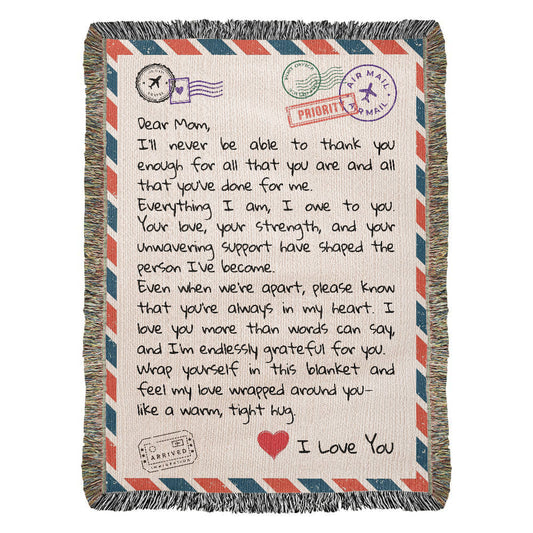 POST OFFICE
AIR MAIL
PRIORITY
AIRMAIL
Dear Mom,
I'll never be able to thank you
enough for all that you are and all
that you've done for me.
Everything I am, I owe to you.
Your love, your strength, and your
unwavering support have shaped the
person I've become.
Even when we're apart, please know
that you're always in my heart. I
love you more than words can say,
and I'm endlessly grateful for you.
Wrap yourself in this blanket and
feel my love wrapped around you-
like a warm, tight hug.
I Love You
ARRIVED
IMMIGRATION